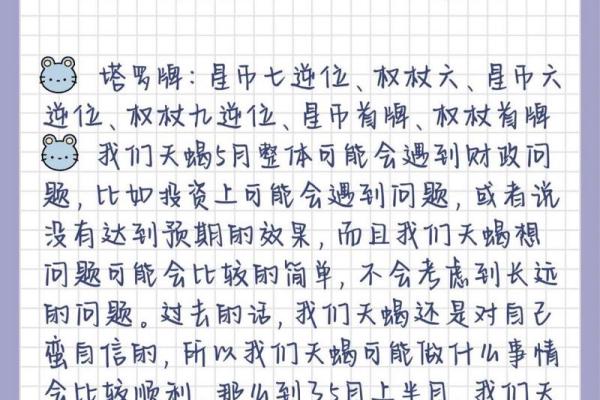 塔罗牌：星币七逆位、权杖六、星币六
逆位、权杖九逆位、星币首牌、权杖首牌
我们天蝎5月整体可能会遇到财政问
题，比如投资上可能会遇到问题，或者说
没有达到预期的效果，而且我们天蝎想
问题可能会比较的简单，不会考虑到长远
的问题。过去的话，我们天蝎还是对自己
蛮自信的，所以我们天蝎可能做什么事情
会比较顺利。那么到了5月上半月，我们天